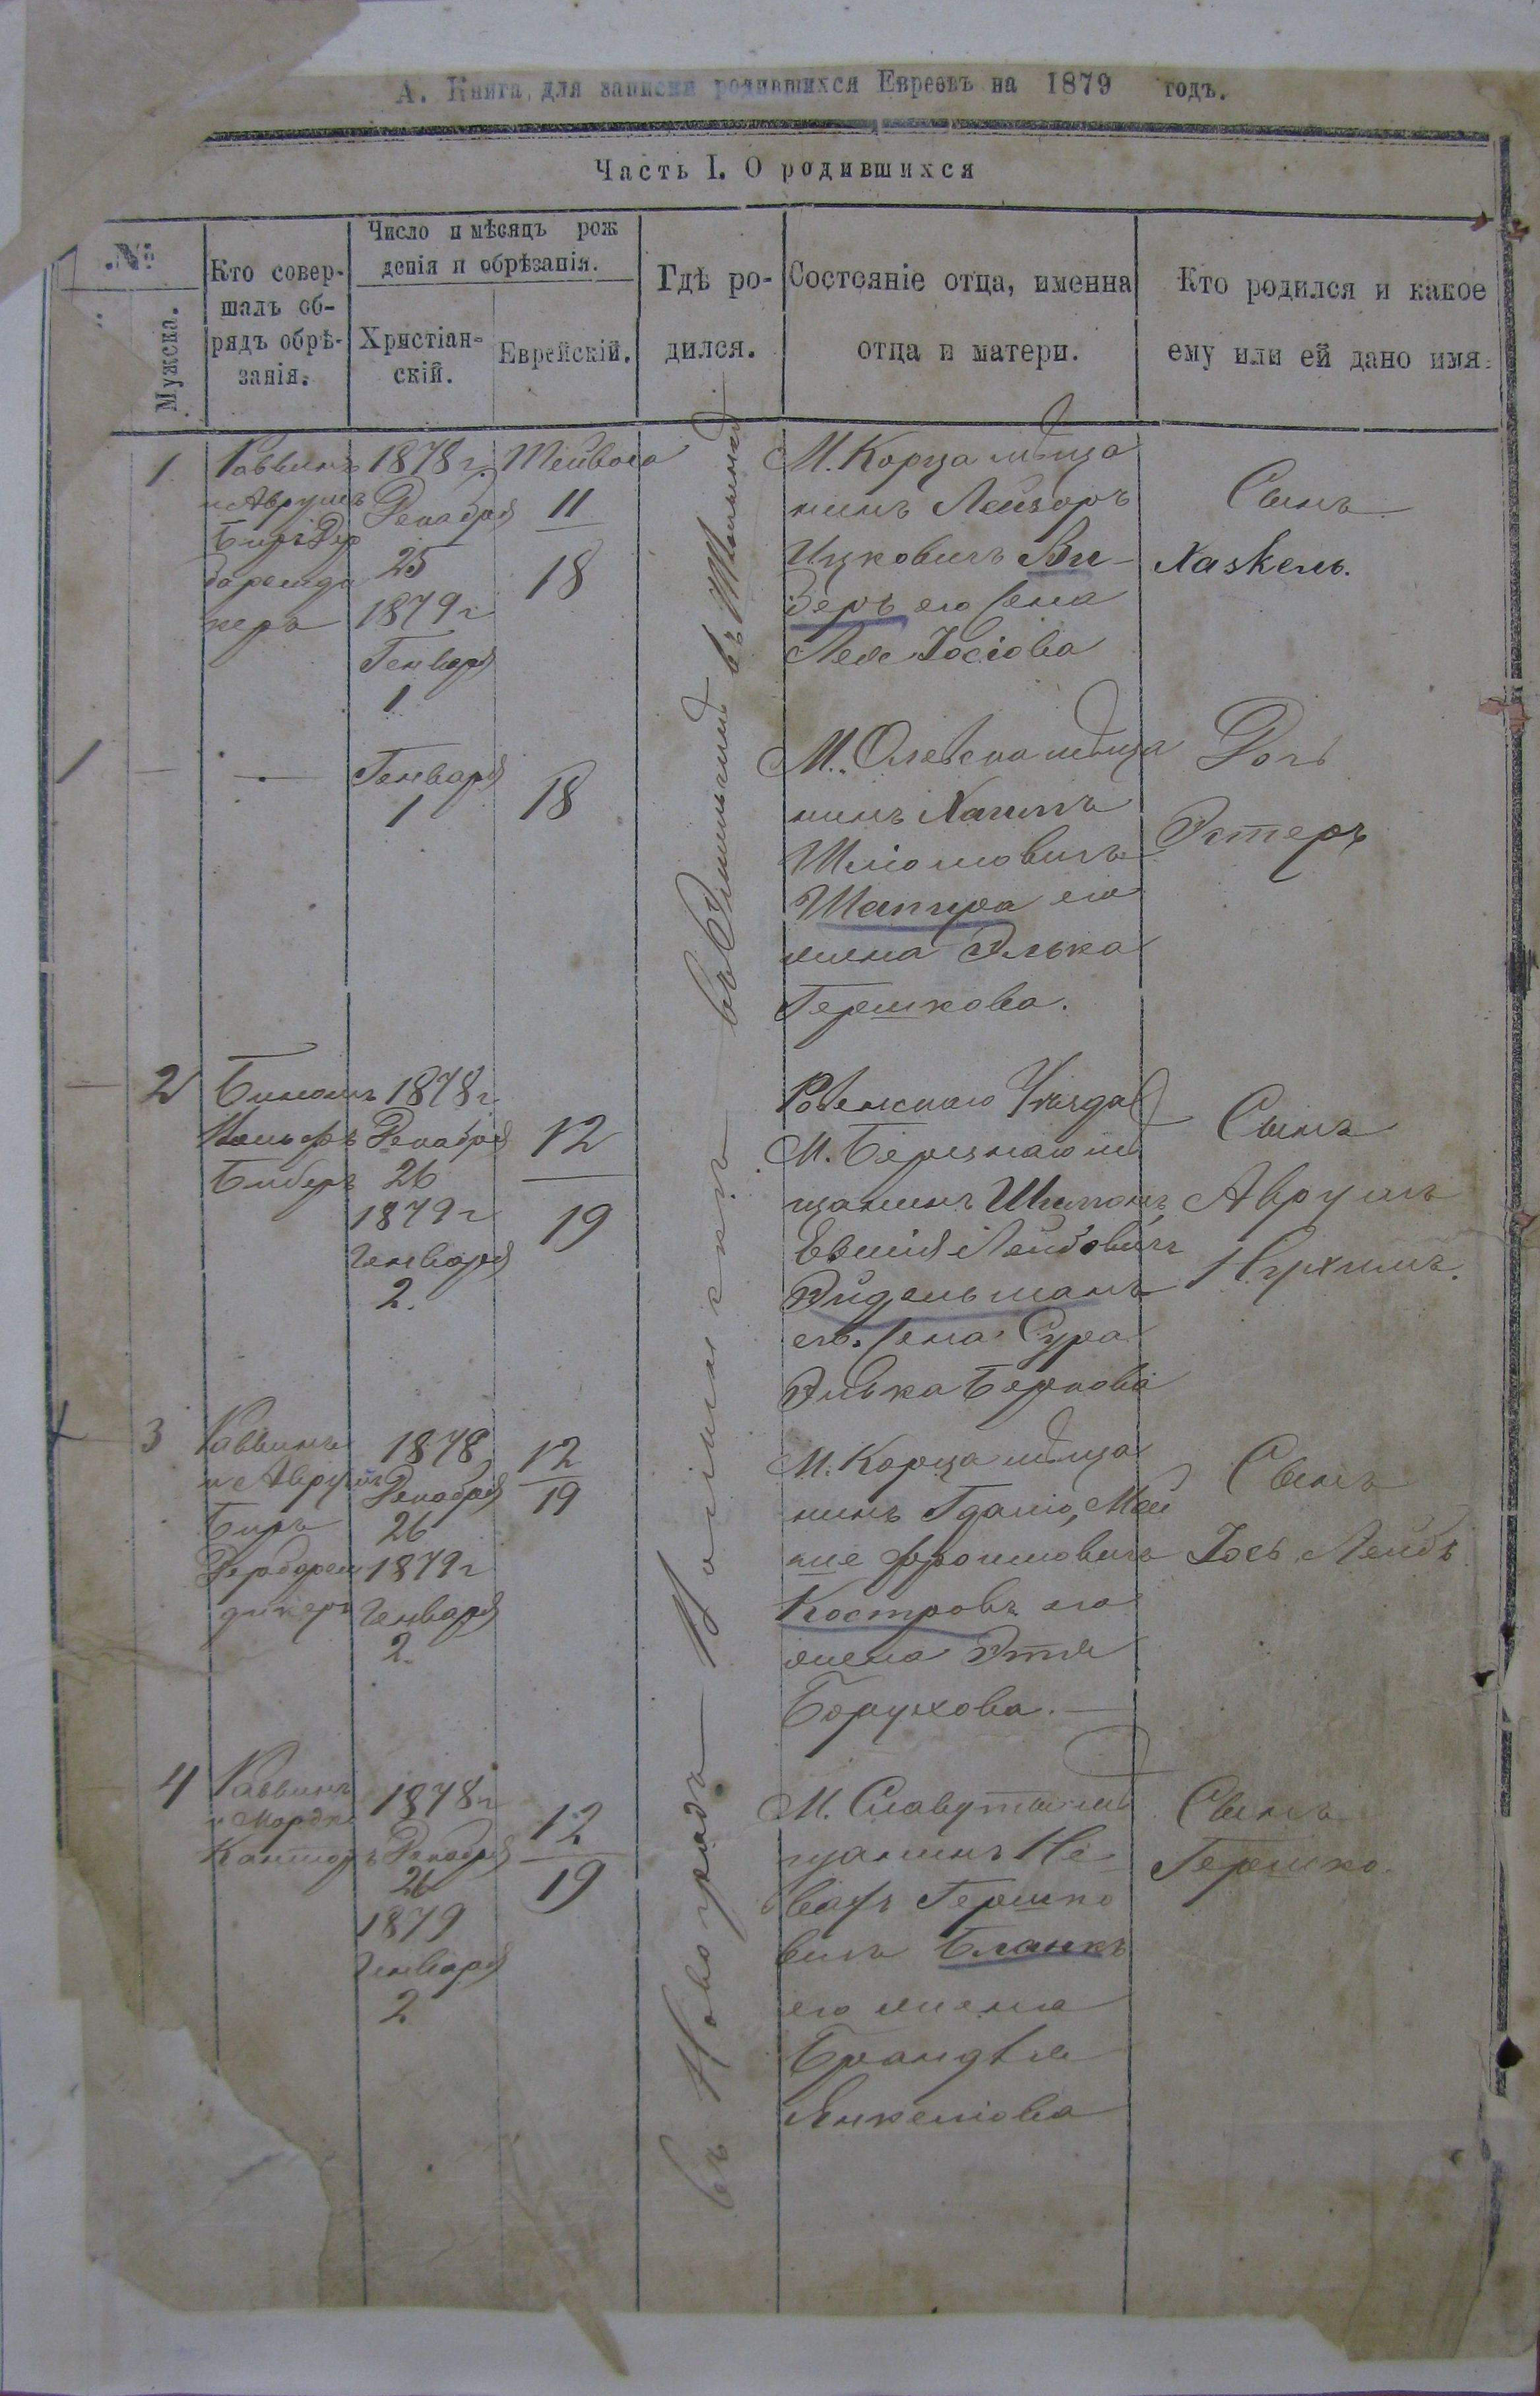 А. Книга для записки родившихся Евреевъ на 1879 годъ.
Часть I. О родившихся
№
Мужска.
Кто совер-
шалъ об-
рядъ обрѣ-
занія.
Число и мѣсяцъ рож
денія и обрѣзанія.
Христіан-
скій.
Еврейскій.
Гдѣ ро-
дился.
Состояніе отца, именна
отца и матери.
Кто родился и какое
ему или ей дано имя.
въ Новоградъ-Волынскѣ
1
Раввинъ
и Аврумъ
1878 г.
Декабря
25
1879 г
Генваря
1
Тейвеса
11
18
М. Корца мѣща
нинъ Лейзоръ
Ицковичъ Ви-
деръ его жена
Лея Іосіова
Сынъ
Хаskель.
1
Генваря
1
18
М. Олевска мѣща
нинъ Хаимъ
Шліомовичъ
Шапира его
жена Элька
Гершкова.
Дочь
Эстеръ
2
1878 г
Декабря
26
1879 г
Генваря
2.
12
19
Ровенскаго Уѣзда
М. Березнаго мѣ
щанинъ Шимонъ
Евшія Лейбовичъ
Эйдельманъ
его жена Сура
Элька Беркова
Сынъ
Аврумъ
Нухимъ.
3
Раввинъ
и Аврумъ
Биръ
Дербарем
дикеръ
1878
Декабря
26
1879 г
Генваря
2.
12
19
М. Корца мѣща
нинъ Гдаліо, Мой
ше Фроимовичъ
Костровъ его
жена Этля
Борухова.
Сынъ
Іось Лейбъ
4
Раввинъ
и Мордко
Канторъ
1878 г
Декабря
26
1879
Генваря
2
12
19
М. Славуты мѣ
щанинъ Не-
вахъ Гершко
вичъ Бланкъ
его жена
Брандля
Янкеліова
Сынъ
Гершко.